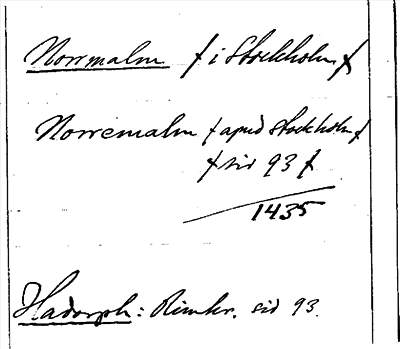 Norrmalm ( i Stockholm )
Norremalm ( apud Stockholm )
( sid 93 )
1435
Hadorph: Rimkr. sid 93.